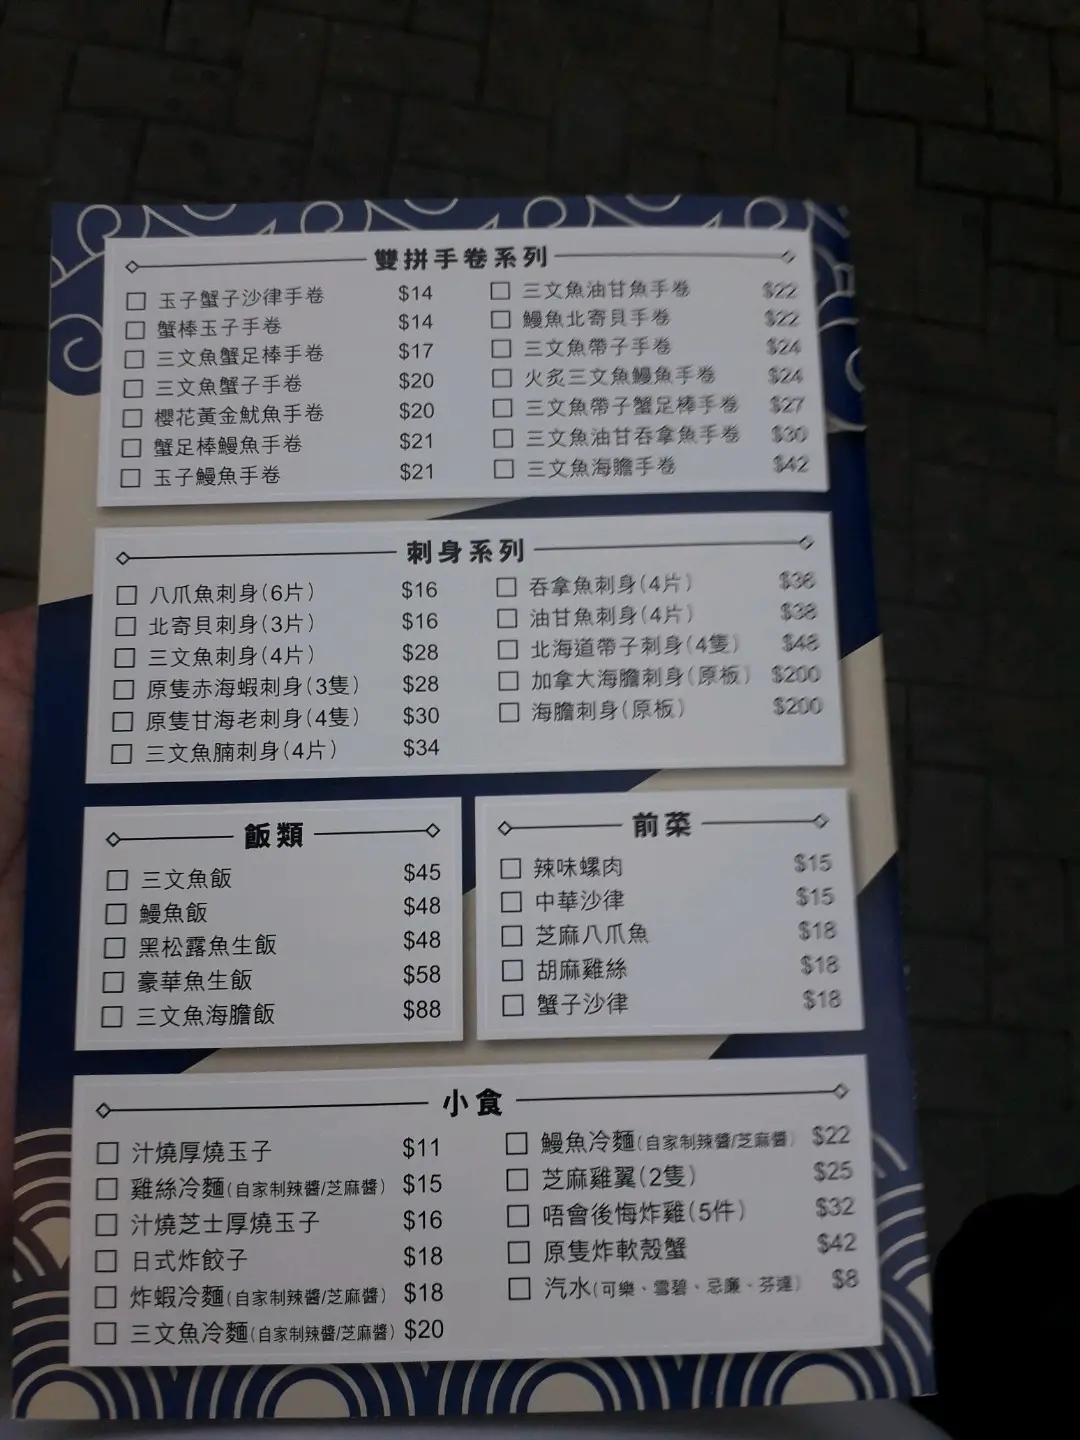 雙拼手卷系列
玉子蟹子沙律手卷 $14
蟹棒玉子手卷 $14
三文魚蟹足棒手卷 $17
三文魚蟹子手卷 $20
櫻花黃金魷魚手卷 $20
蟹足棒鰻魚手卷 $21
玉子鰻魚手卷 $21
三文魚油甘魚手卷 $22
鰻魚北寄貝手卷 $22
三文魚帶子手卷 $24
火炙三文魚鰻魚手卷 $24
三文魚帶子蟹足棒手卷 $27
三文魚油甘吞拿魚手卷 $30
三文魚海膽手卷 $42
刺身系列
八爪魚刺身(6片) $16
北寄貝刺身(3片) $16
三文魚刺身(4片) $28
原隻赤海蝦刺身(3隻) $28
原隻甘海老刺身(4隻) $30
三文魚腩刺身(4片) $34
吞拿魚刺身(4片) $36
油甘魚刺身(4片) $38
北海道帶子刺身(4隻) $48
加拿大海膽刺身(原板) $200
海膽刺身(原板) $200
飯類
三文魚飯 $45
鰻魚飯 $48
黑松露魚生飯 $48
豪華魚生飯 $58
三文魚海膽飯 $88
前菜
辣味螺肉 $15
中華沙律 $15
芝麻八爪魚 $18
胡麻雞絲 $18
蟹子沙律 $18
小食
汁燒厚燒玉子 $11
雞絲冷麵(自家制辣醬/芝麻醬) $15
汁燒芝士厚燒玉子 $16
日式炸餃子 $18
炸蝦冷麵(自家制辣醬/芝麻醬) $18
三文魚冷麵(自家制辣醬/芝麻醬) $20
鰻魚冷麵(自家制辣醬/芝麻醬) $22
芝麻雞翼(2隻) $25
唔會後悔炸雞(5件) $32
原隻炸軟殼蟹 $42
汽水(可樂、雪碧、忌廉、芬達) $8